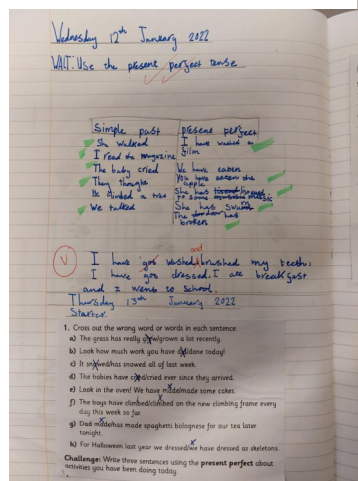 Wednesday 12th January 2022
WALT: Use the present perfect tense
Simple past
present perfect
She walked
I read the magazine
The baby cried
They thought
He climbed a tree
We talked
I have watched a
film
We have eaten
You have eaten the
apple
She has listened
to some music
She has swum
The door has
broken
V
I have got washed, and brushed my teeth,
I have got dressed. I ate breakfast
and I went to school.
Thursday 13th January 2022
Starter
1. Cross out the wrong word or words in each sentence.
a) The grass has really grew/grown a lot recently.
b) Look how much work you have did/done today!
c) It snowed/has snowed all of last week.
d) The babies have cried ever since they arrived.
e) Look in the oven! We have made/made some cakes.
f) The boys have climbed/climbed on the new climbing frame every
day this week so far.
g) Dad made/has made spaghetti bolognese for our tea later
tonight.
h) For Halloween last year we dressed/we have dressed as skeletons.
Challenge: Write three sentences using the present perfect about
activities you have been doing today.